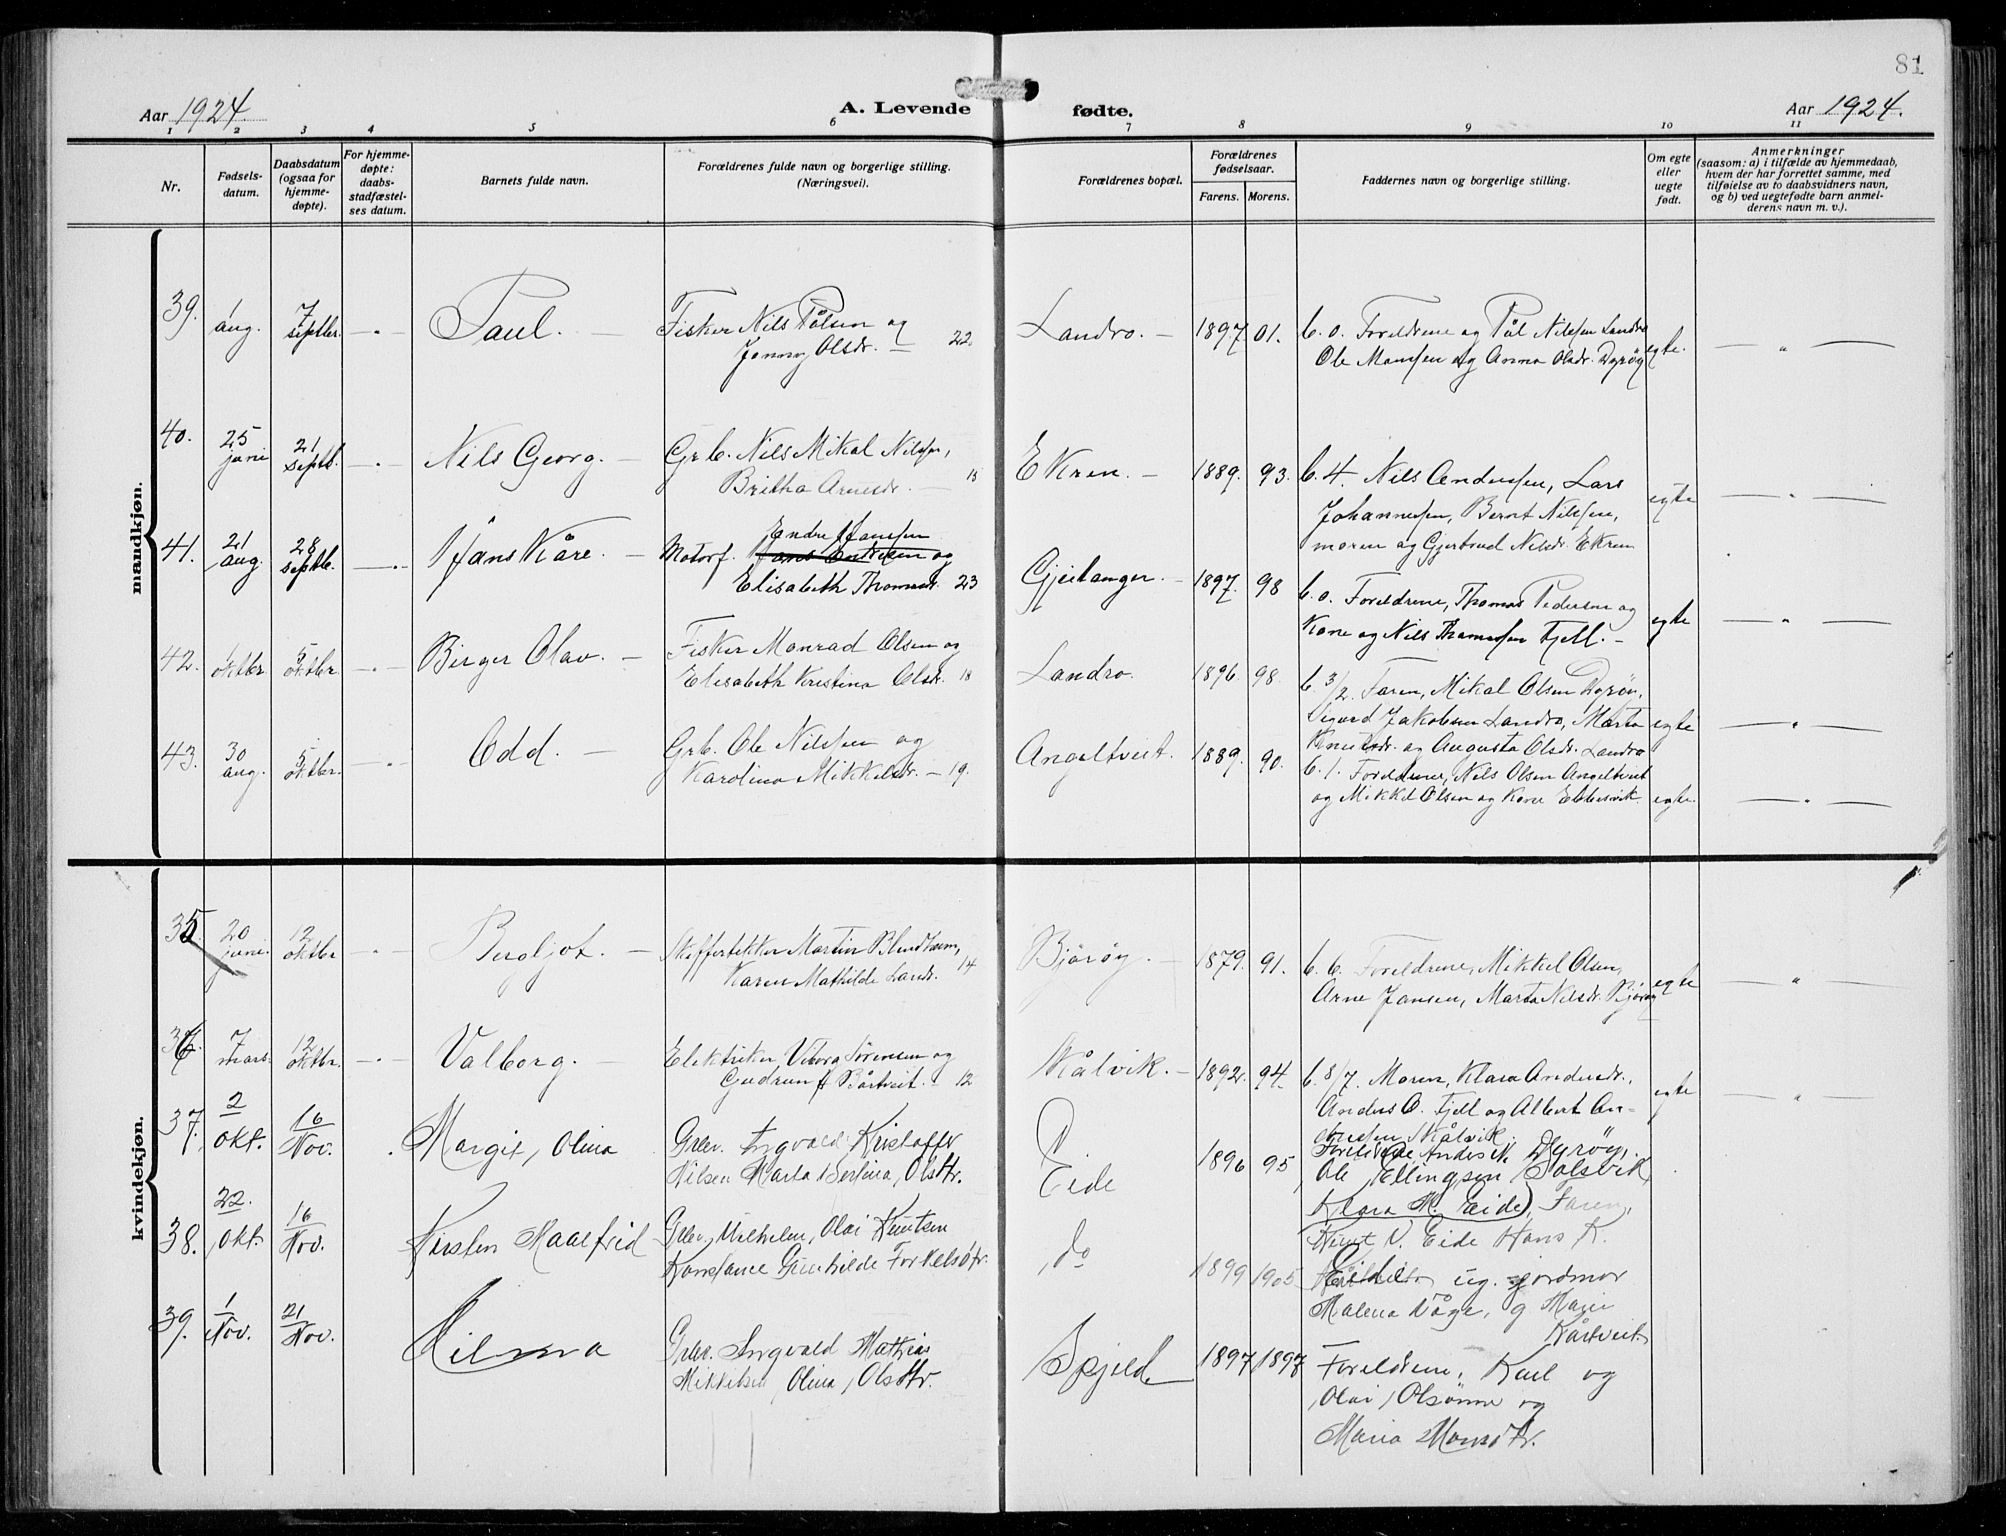 81
Aar 1924.
A. Levende fødte.
Aar 1924.
1 2 3 4 5 6 7 8 9 10 11
Nr.
Fødsels-
datum.
Daabsdatum
(ogsaa for
hjemme-
døpte).
For hjemme-
døpte:
daabs-
stadfæstel-
ses datum.
Barnets fulde navn.
Forældrenes fulde navn og borgerlige stilling.
(Næringsvei).
Forældrenes bopæl.
Forældrenes
fødselsaar.
Farens. Morens.
Faddernes navn og borgerlige stilling.
Om egte
eller
uegte
født.
Anmerkninger
(saasom: a) i tilfælde av hjemmedaab,
hvem der har forrettet samme, med
tilføielse av to daabsvidners navn,
og b) ved uegtefødte barn anmel-
derens navn m. v.).
mandkjøn.
39. 1 aug. 7 septbr. — Paul. — Fisker Nils Pålsen og
Jenny Olsdr. — 22. Landro. — 1897 01. b. o. Foreldrene og Pål Nilssen Landro
Ole Monssen og Anna Olsdr. Dyrøy egte. — " —
40. 25 juni 21 septb. — Nils Georg. — Grb. Nils Mikal Nilssen,
Britha Arnesdr. — 13 Ekren. — 1889. 93. b. 4. Nils Anderssen, Lars
Johannessen, Bernt Nilssen,
moren og Gjertrud Nilsdr. Ekren egte — " —
41. 21 aug. 28 septb. — Hans Kåre. — Motorf. Endre Hanssen
og
Elisabeth Thomasdr. 23 Gjeitanger. — 1897. 98 b. o. Foreldrene, Thomas Pedersen og
Kone og Nils Thomassen Fjell. — egte — " —
42. 1 oktbr. 5 oktbr. — Birger Olav. — Fisker Monrad Olsen og
Elisabeth Kristina Olsdr. 18 Landro. 1896. 98. b. 3/2. Faren, Mikal Olsen Dyrøy,
Sigurd Jakobsen Landro, Marta
Knutsdr. og Augusta Olsdr. Landro egte — " —
43. 30 aug. 5 oktbr. — Odd. — Grb. Ole Nilssen og
Karolina Mikkelsdr. — 19. Angeltveit. 1889. 90. b. 1. Foreldrene, Nils Olsen Angeltveit
og Mikkel Olsen og Kone Ebbesvik egte. — " —
kvindekjøn.
35. 20 juni. 12 oktbr — Bergljot. — Martin Blindheim,
Karen Mathilde Larsdr. 14 Bjørøy. — 1879. 91. b. 6. Foreldrene, Mikkel Olsen,
Arne Jansen, Marta Nilsdr. Bjørøy egte — " —
36. 7 mars. 12 oktbr. — Valborg. — Elektriker Viborg Sørensen og
Gudrun Bårtveit. — 12 Kålvik. — 1892. 94. b. 8/7. Moren, Klara Andersdr.,
Anders O. Fjell og Albert An-
dersen Kålvik. egte — " —
37. 2 okt. 16 Nov. Margit, Olina Grbr. Ingvald Kristoffer
Nilsen Marta Serina, Olsdtr. Eide 1896 95 Dyrøy,
Ole Ellingsen Solsvik,
Klara M. Eide
38. 22. okt. 16 Nov. Kirsten Maalfrid Grbr. Vilhelm, Olai Knutsen
Konstance Gunhilde Torkelsdtr. do 1899 1905 Faren,
Knut V. Eide Hans K.
Eide ug. jordmor
Malena Våge, og Marie
Kårtveit
39. 1 Nov. 21 Nov. Hilma Grbr. Ingvald Mathias
Mikkelsen, Olina, Olsdtr. Spjeld 1897 1897 Foreldrene, Karl og
Olai, Olsønne og
Maria Monsdtr.